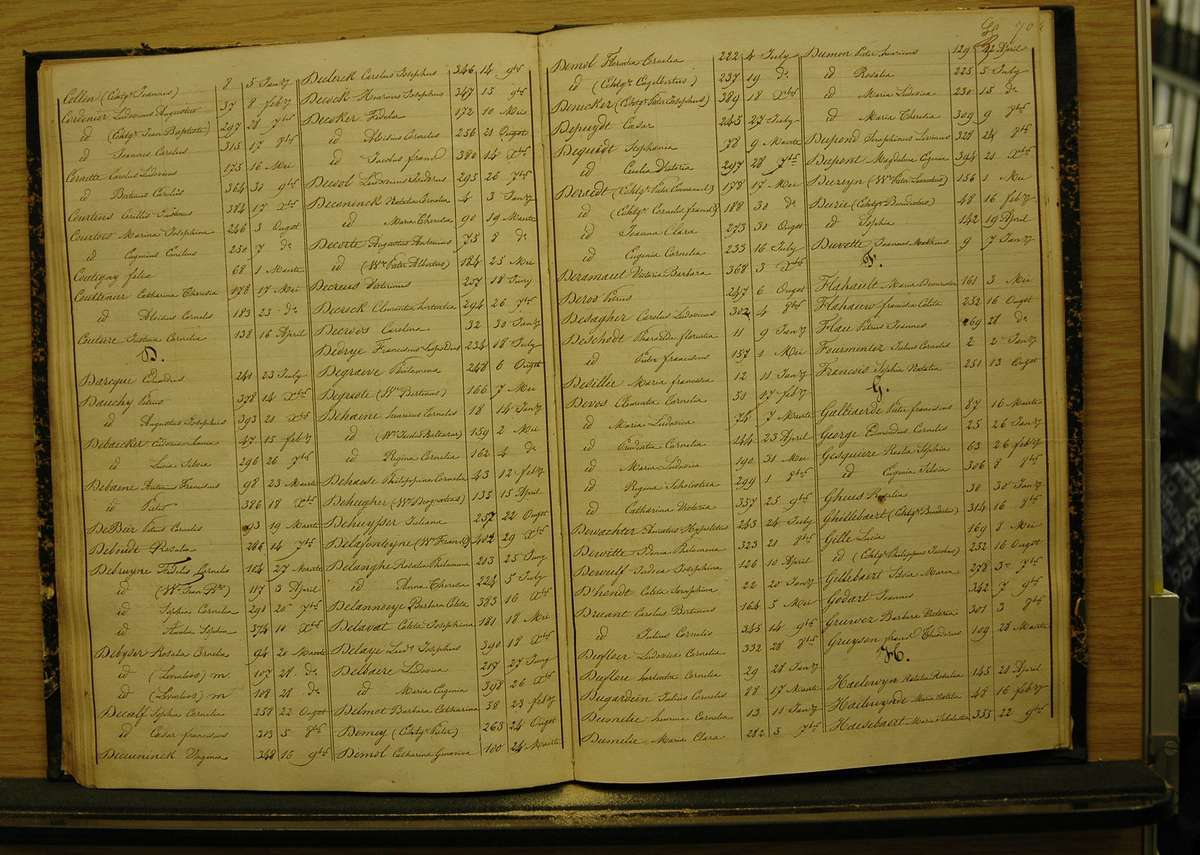 Collen (Echtge Joannis) 8 5 Janry
Cordonier Ludovicus Augustus 37 8 febry
id (Echtge Jean Baptiste) 297 28 7bre
id Joannes Carolus 315 17 8bre
Cornette Carolus Ludovicus 175 16 Mei
id Carolus 364 30 9bre
Courtens Cirillus 384 17 Xbre
Courtois Marina Josephina 246 3 Ougst
id Eugenius 250 7 do
Coutigny felix 68 1 Maerte
Couttenier Catharina Theresia 178 17 Mei
id Aloisius Cornelis 183 23 do
Couture Justina Cornelia 138 16 April
D.
Darcque 241 23 July
Dauchy Pirus 378 14 Xbre
id Augustus Josephus 393 21 Xbre
Debacker Ludovica 47 15 febry
id Lucia Silvia 296 26 7bre
Debaene Antone Franciscus 98 23 Maerte
id Pieter 386 18 Xbre
DeBeir Pirus Cornelis 93 19 Maerte
Debeudt Rosalia 286 14 7bre
Debruyne Fidelis Cornelis 104 27 Maerte
id (We Jean Bte) 117 3 April
id Sophia Cornelia 291 20 7bre
id Amelia Sophia 374 10 Xbre
Debyser Rosalia Cornelia 94 20 Maerte
id (Levenloos) m 107 28 do
id (Levenloos) m 108 28 do
Decalf Sophia Cornelia 259 22 Ougst
id Cesar franciscus 313 5 8bre
Decuninck Virginia 348 16 9bre
Declerck Carolus Josephus 346 14 9bre
Decock Henricus Josephus 347 15 9bre
Decoker Fidela 172 10 Mei
id Aloisius Cornelis 256 21 Ougst
id 380 14 Xbre
Decool Ludovicus Isidorus 295 26 7bre
Deconinck Natalia Amelia 4 3 Janry
id Maria Theresia 90 19 Maerte
Decorte Augustus Antonius 75 8 do
id (We Pieter Albertus) 184 25 Mei
Decroes Victorinus 207 18 Juny
Decrick Clementia 294 26 7bre
Decroos Carolina 32 30 Janry
Dedrye Franciscus Leopoldus 234 18 July
Degraeve Philamina 248 6 Ougst
Dequote (We Bertinus) 166 7 Mei
Dehaene Henricus Cornelis 18 14 Janry
id 159 2 Mei
id Regina Cornelia 162 4 do
Dehaeste Philippina Cornelia 43 12 febry
Dehugher 135 15 April
Dehuyser Juliana 257 22 Ougst
Delafonteyne (We Francs) 402 29 Xbre
Delanghe Rosalia Philamina 213 25 Juny
id Anna Theresia 224 5 July
Delannooye Barbara Colete 383 16 Xbre
Delavat Coleta Josephina 181 18 Mei
Delaye Ludvs Josephus 390 18 Xbre
Delbaere Ludovica 217 27 Juny
id Maria Eugenia 398 26 Xbre
Delmot Barbara Catharina 58 23 febry
Demey (Echtge Pieter) 263 24 Ougst
Demol Catharina Joanna 100 24 Maerte
Demol Florentia Cornelia 222 4 July
id (Echtge Engelbertus) 237 19 do
Denecker (Echtge Pieter Josephus) 389 18 Xbre
Depuydt Cesar 245 27 July
Dequidt Stephania 78 9 Maerte
id Coralia Victoria 297 28 7bre
Deraedt (Echtge Pieter Emmanuel) 178 17 Mei
id (Echtge Cornelis francs) 188 30 do
id Joanna Clara 273 30 Ougst
id Eugenia Cornelia 233 16 July
Deramaut Victoria Barbara 368 3 Xbre
Deroo Pirus 247 6 Ougst
Desagher Carolus Ludovicus 302 4 8bre
Deschodt florentia 11 9 Janry
id Pieter franciscus 157 1 Mei
Desitter Maria francisca 12 11 Janry
Devos Clementia Cornelia 51 17 febry
id Maria Ludovica 74 7 Maerte
id Cornelia 144 23 April
id Maria Ludovica 190 31 Mei
id Regina Scholastica 299 1 8bre
id Catharina Victoria 357 25 9bre
Dewachter Amatus Hypolitus 243 24 July
Dewitte Maria Philomena 323 21 8bre
Dewulf Julia Josephina 126 10 April
Dhondt Coleta Seraphina 22 20 Janry
Druant Carolus Bertinus 164 5 Mei
id Julius Cornelis 345 14 9bre
Dufloer Ludovica Cornelia 332 28 8bre
Duflore Cornelia 29 28 Janry
Dugardein Julius Cornelis 88 17 Maerte
Dumelie Cornelia 13 11 Janry
Dumelie Maria Clara 282 5 7bre
70
Dumon Pieter 129 12 April
id Rosalia 225 5 July
id Maria Ludovica 230 15 do
id Maria Theresia 309 9 7bre
Dupond Josephina 328 24 8bre
Dupont Magdalena Eugenia 394 21 Xbre
Duruyn (We Pieter Leonardus) 156 1 Mei
Durie (Echtge Benedictus) 48 16 febry
id Sophia 142 19 April
Duvette Joannes 9 7 Janry
F.
Flahault Maria 161 3 Mei
Flahauw francisca Coleta 252 16 Ougst
Flau Pirus Joannes 269 28 do
Fourmentez Julius Cornelis 2 2 Janry
Francois Sophia Natalia 251 13 Ougst
G.
Galliaerde Pieter franciscus 87 16 Maerte
George Cornelis 25 26 Janry
Gesquiere Rosalia Sophia 63 26 febry
id Eugenia Silvia 306 8 8bre
Gheus 30 30 Janry
Ghillebaert (Echtge Benedictus) 314 16 8bre
Gille Lucia 169 8 Mei
id (Echtge Philippus) 252 16 Ougst
Gillebaert Maria 278 3 7bre
Godart Joannes 342 7 9bre
Gruwez Barbara Victoria 301 3 8bre
Gruyson francs Theodorus 109 28 Maerte
H.
Haelewyn Natalia Rosalia 145 21 April
Haelewynde Maria Natalia 48 16 febry
Haesebaert Maria 355 22 9bre